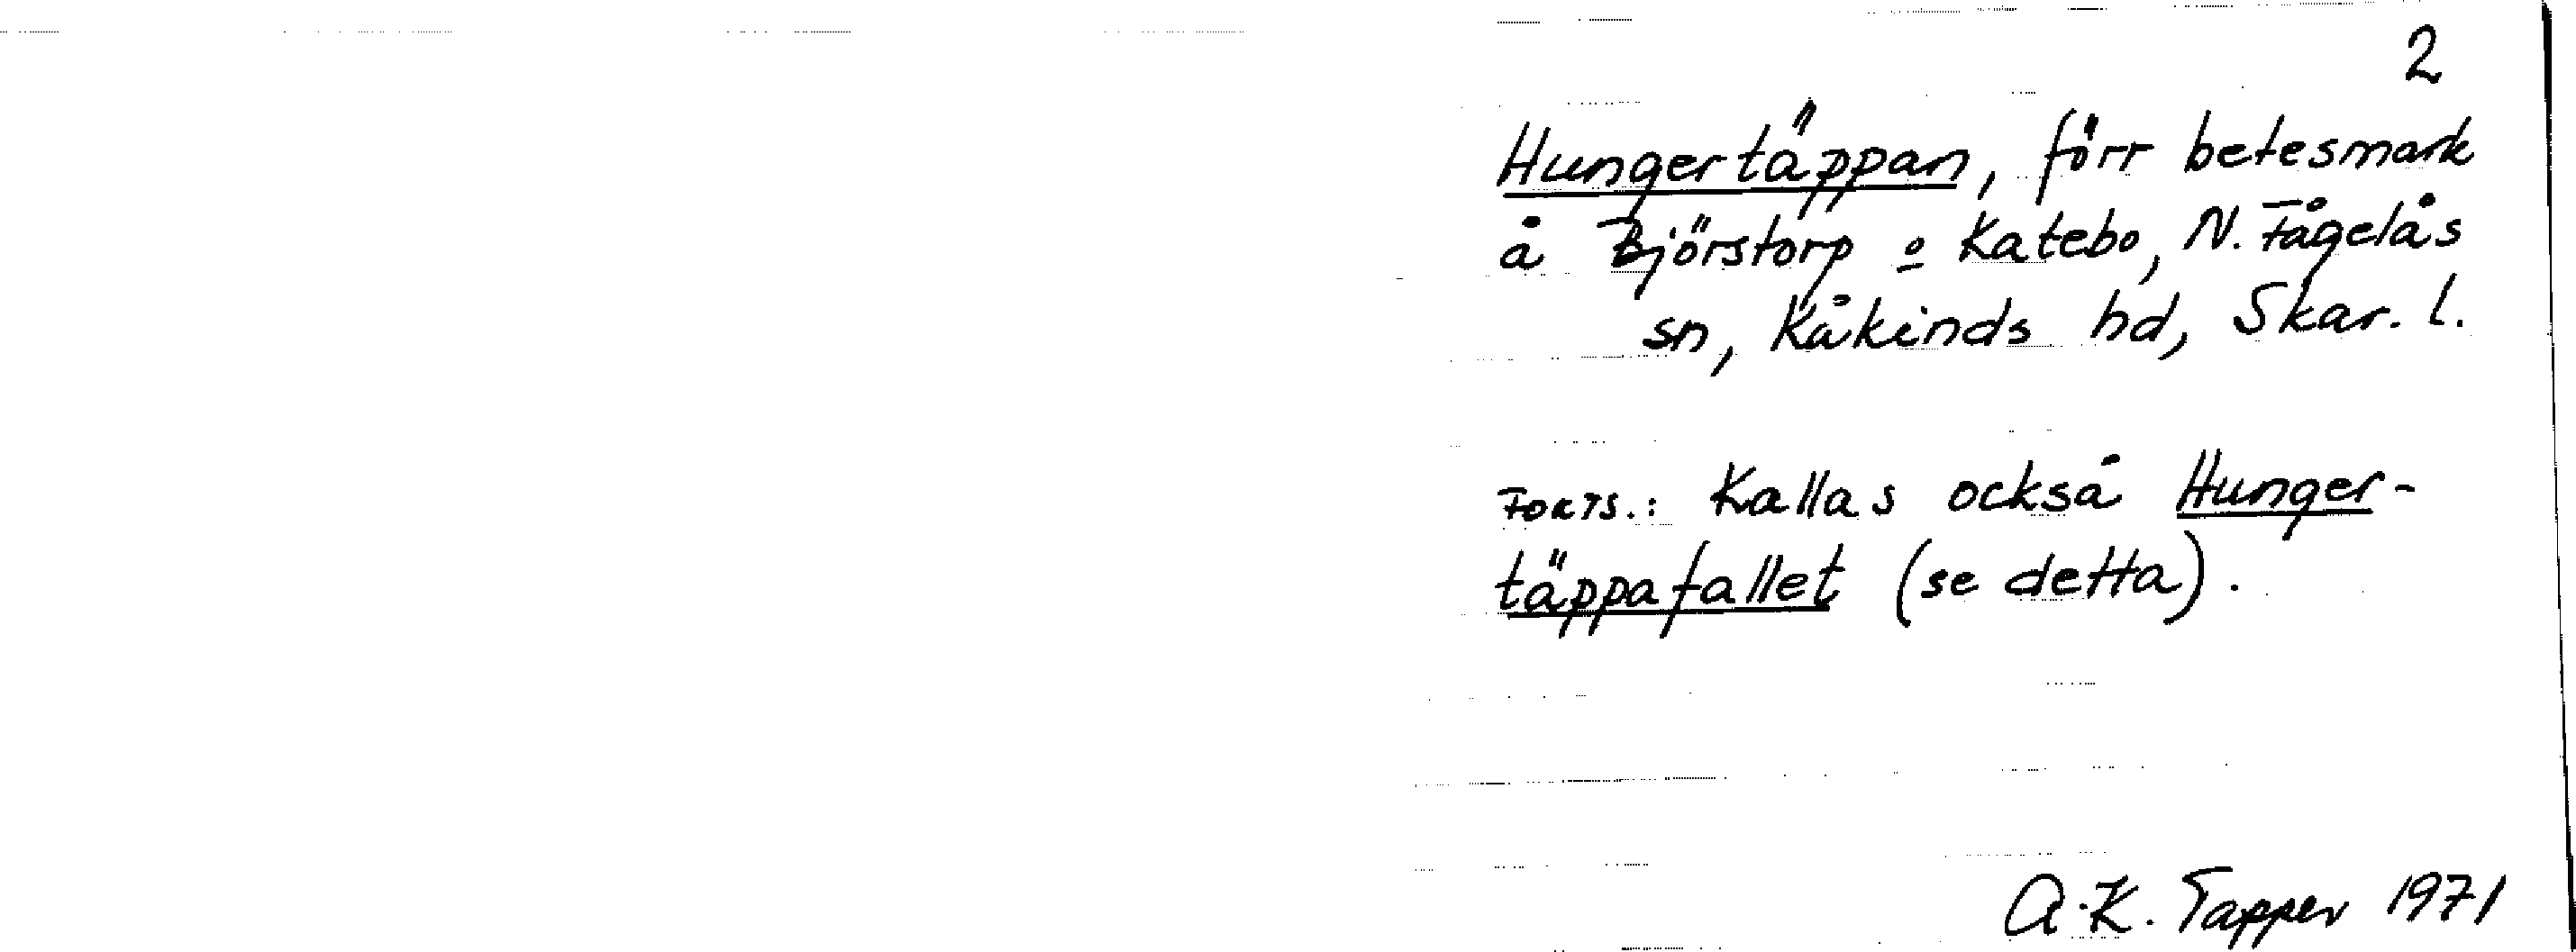 2
Hungertäppan, förr betesmark
å Björstorp o Katebo, N. Fågelås
sn, Kåkinds hd, Skar. l.
FORTS.: Kallas också Hunger-
täppafallet (se detta).
A.K. Tapper 1971